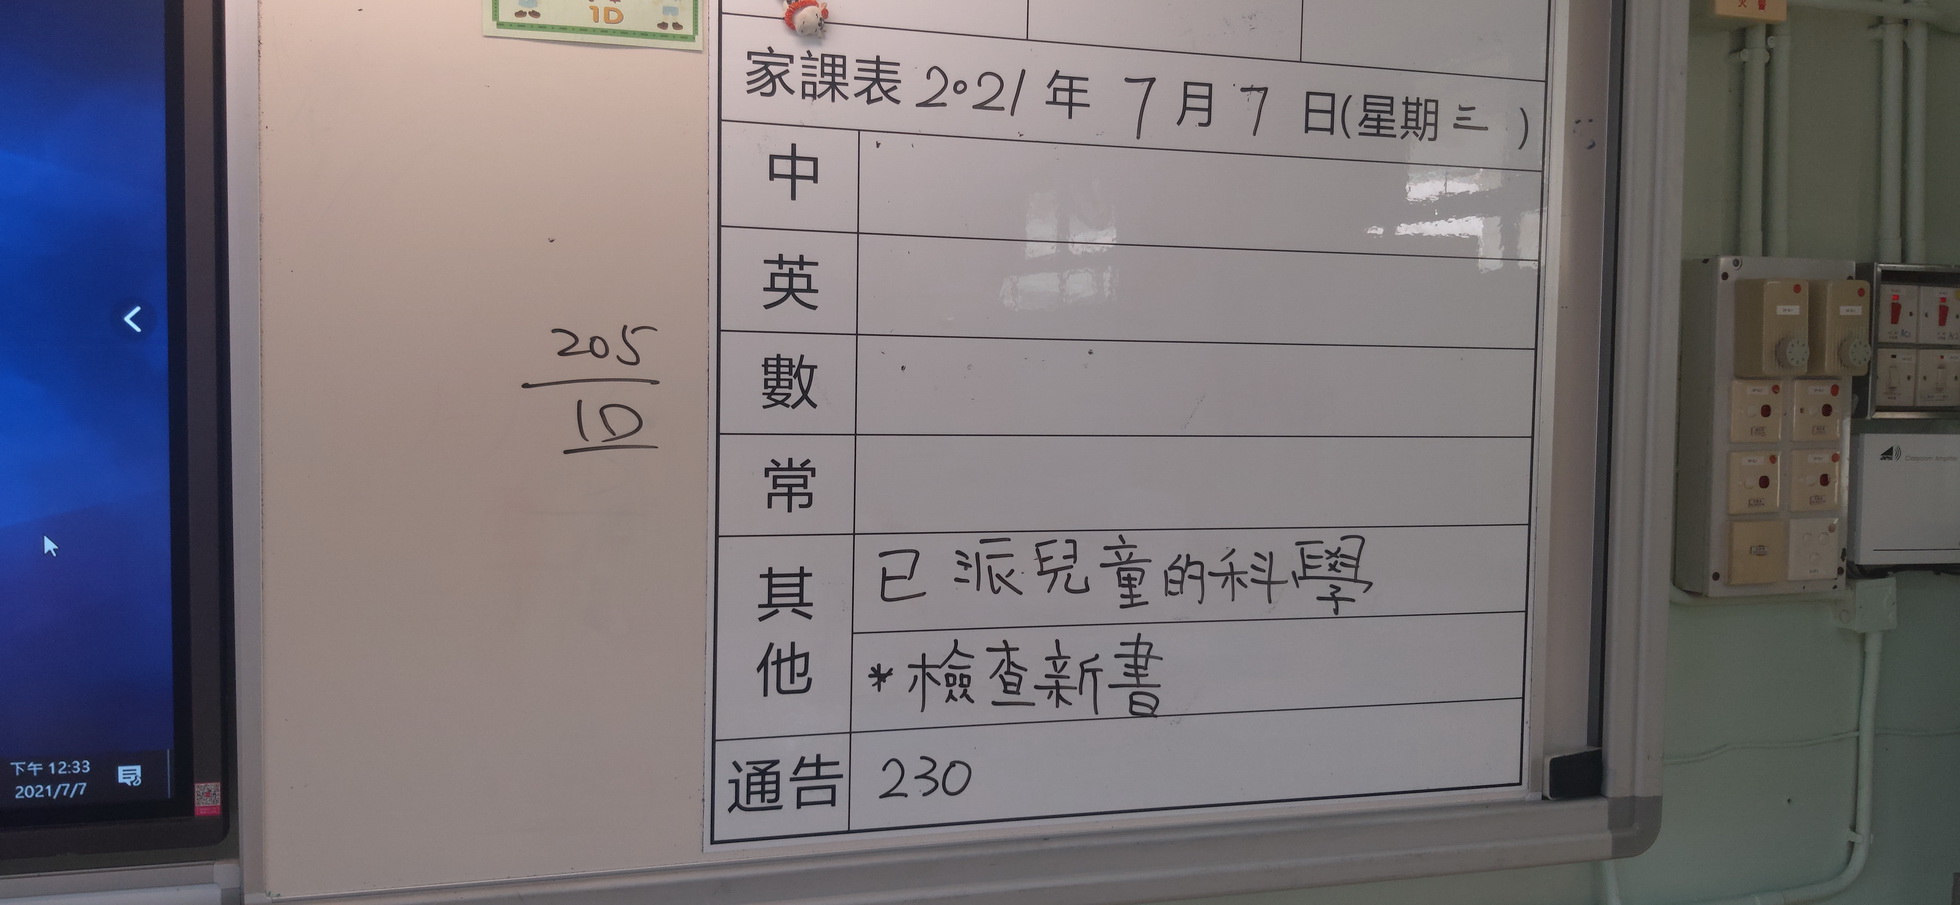 1D
家課表 2021年 7月7日(星期三)
中
英
數
常
其他
已派兒童的科學
*檢查新書
通告 230
205
1D
下午 12:33
2021/7/7